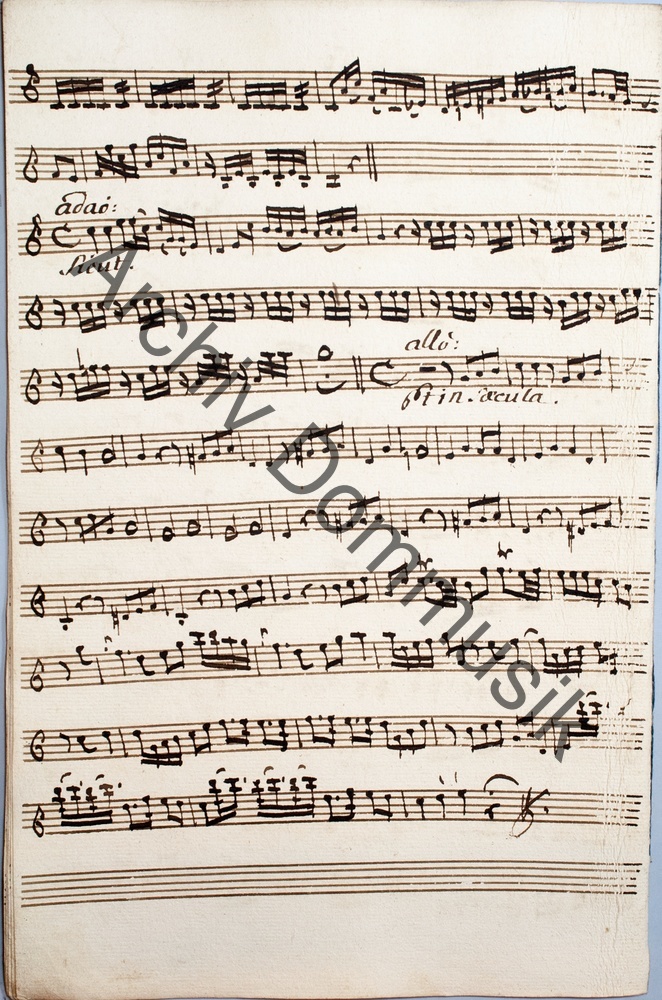 adaô:
Sicut.
allô:
Et in Sæcula.
Archiv Dommusik